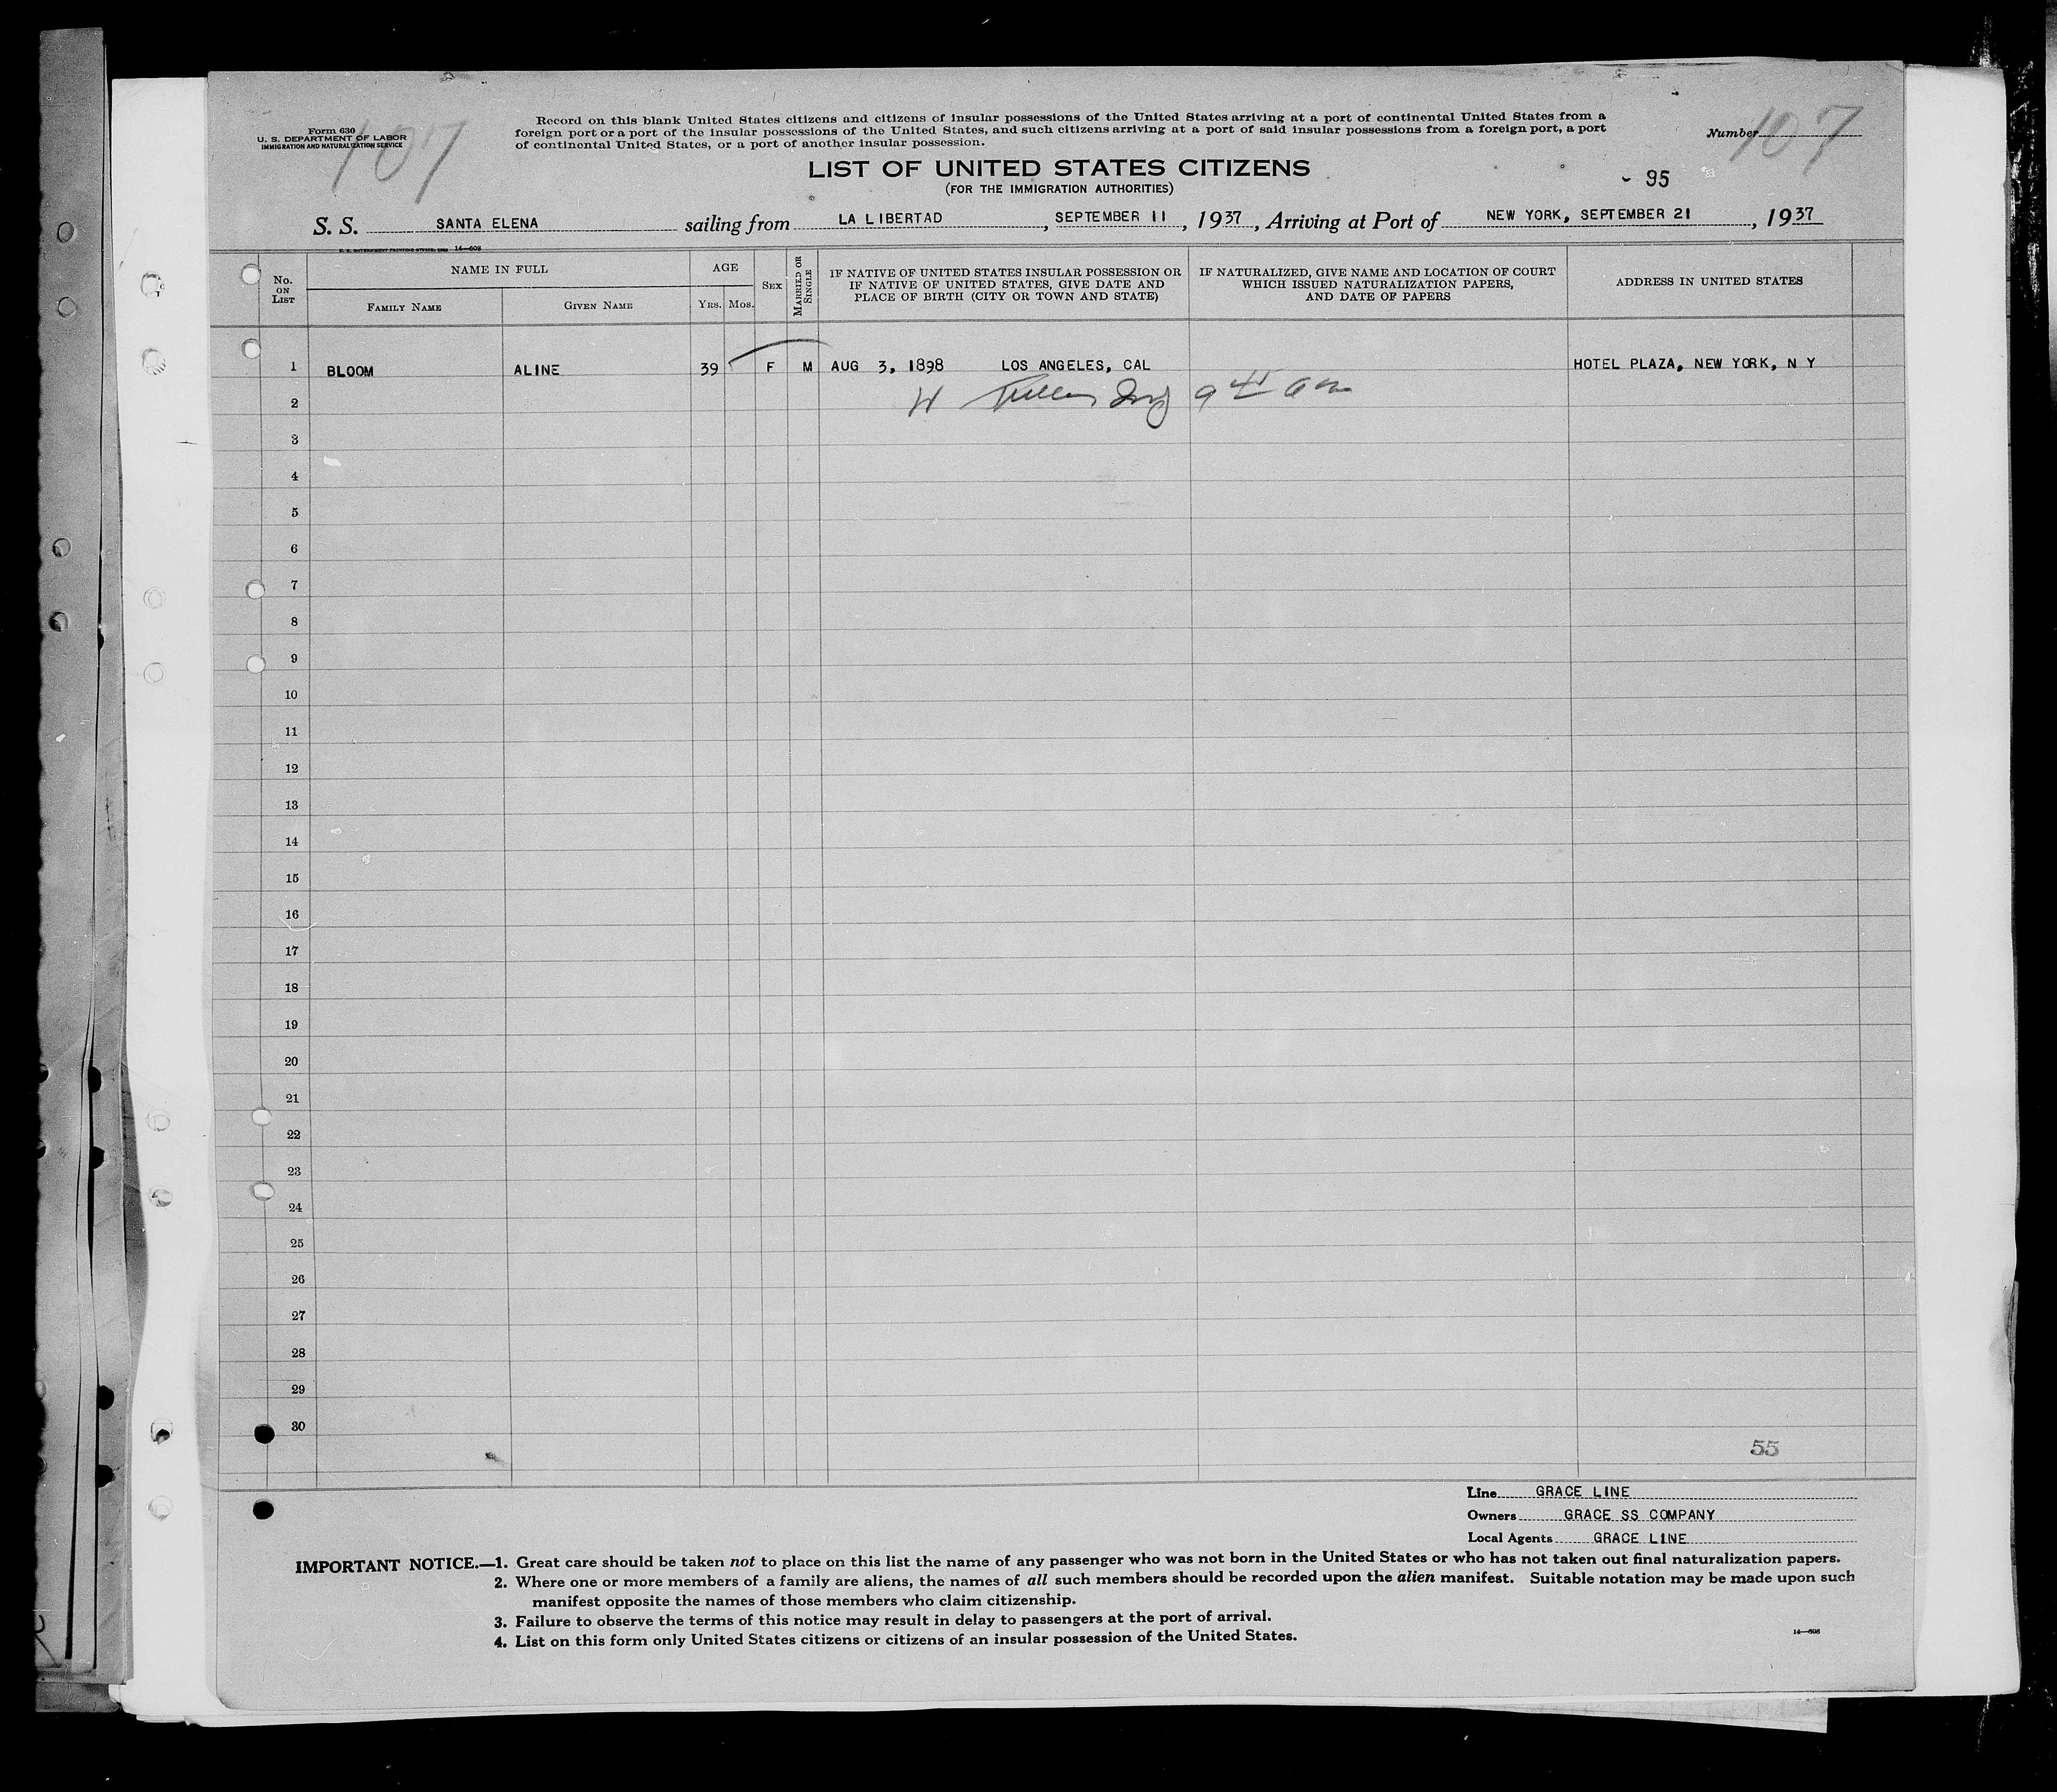 Form 630
U. S. DEPARTMENT OF LABOR
IMMIGRATION AND NATURALIZATION SERVICE
107
Record on this blank United States citizens and citizens of insular possessions of the United States arriving at a port of continental United States from a
foreign port or a port of the insular possessions of the United States, and such citizens arriving at a port of said insular possessions from a foreign port, a port
of continental United States, or a port of another insular possession.
Number 107
LIST OF UNITED STATES CITIZENS
(FOR THE IMMIGRATION AUTHORITIES)
- 95
S. S. SANTA ELENA sailing from LA LIBERTAD, SEPTEMBER 11, 1937, Arriving at Port of NEW YORK, SEPTEMBER 21, 1937
14—608
No. ON LIST
NAME IN FULL
FAMILY NAME
GIVEN NAME
AGE
YRS. MOS.
SEX
MARRIED OR SINGLE
IF NATIVE OF UNITED STATES INSULAR POSSESSION OR
IF NATIVE OF UNITED STATES, GIVE DATE AND
PLACE OF BIRTH (CITY OR TOWN AND STATE)
IF NATURALIZED, GIVE NAME AND LOCATION OF COURT
WHICH ISSUED NATURALIZATION PAPERS,
AND DATE OF PAPERS
ADDRESS IN UNITED STATES
1 BLOOM ALINE 39 F M AUG 3, 1898 LOS ANGELES, CAL HOTEL PLAZA, NEW YORK, N Y
2
3
4
5
6
7
8
9
10
11
12
13
14
15
16
17
18
19
20
21
22
23
24
25
26
27
28
29
30
55
Line GRACE LINE
Owners GRACE SS COMPANY
Local Agents GRACE LINE
IMPORTANT NOTICE.—1. Great care should be taken not to place on this list the name of any passenger who was not born in the United States or who has not taken out final naturalization papers.
2. Where one or more members of a family are aliens, the names of all such members should be recorded upon the alien manifest. Suitable notation may be made upon such
manifest opposite the names of those members who claim citizenship.
3. Failure to observe the terms of this notice may result in delay to passengers at the port of arrival.
4. List on this form only United States citizens or citizens of an insular possession of the United States.
14—608